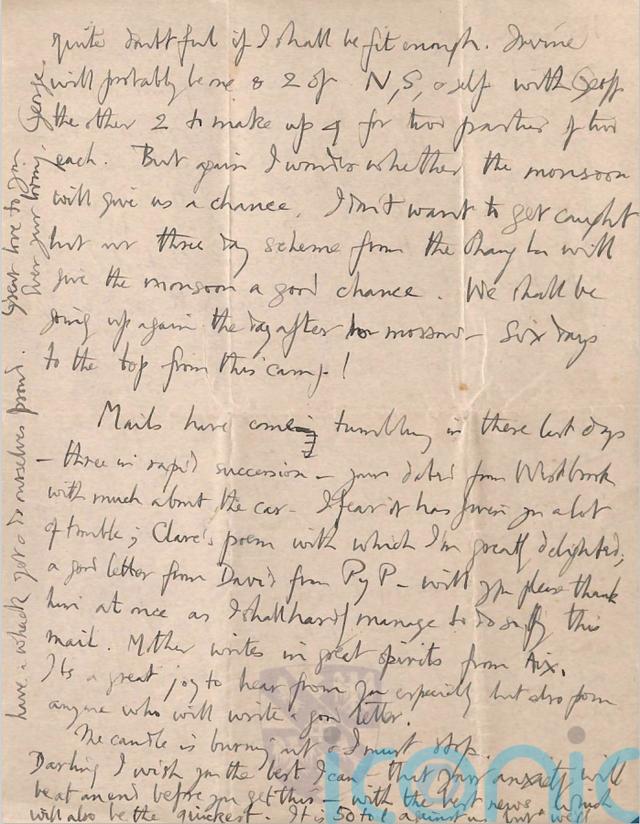 quite doubtful if I shall be fit enough. Irvine
will probably be one & 2 of N, S, & self with Geoff
the other 2 to make up 4 for two parties of two
each. But again I wonder whether the monsoon
will give us a chance. I don't want to get caught
but our three day scheme from the Chang La will
give the monsoon a good chance. We shall be
going up again the day after to morrow - Six days
to the top from this camp!
Mails have come tumbling in these last days
- three in rapid succession - yours dated from Westbrook
with much about the car - I fear it has given you a lot
of trouble; Clare's poem with which I'm greatly delighted;
a good letter from David from PyP - will you please thank
him at once as I shall hardly manage to do so by this
mail. Mother writes in great spirits from Aix.
Its a great joy to hear from you especially but also from
anyone who will write a good letter.
The candle is burning out & I must stop.
Darling I wish you the best I can - that your anxiety will
be at an end before you get this - with the best news. Which
will also be the quickest. It is 50 to 1 against us but we'll
have a whack yet & do ourselves proud. Great love to you
Ever your loving, George.
iconic